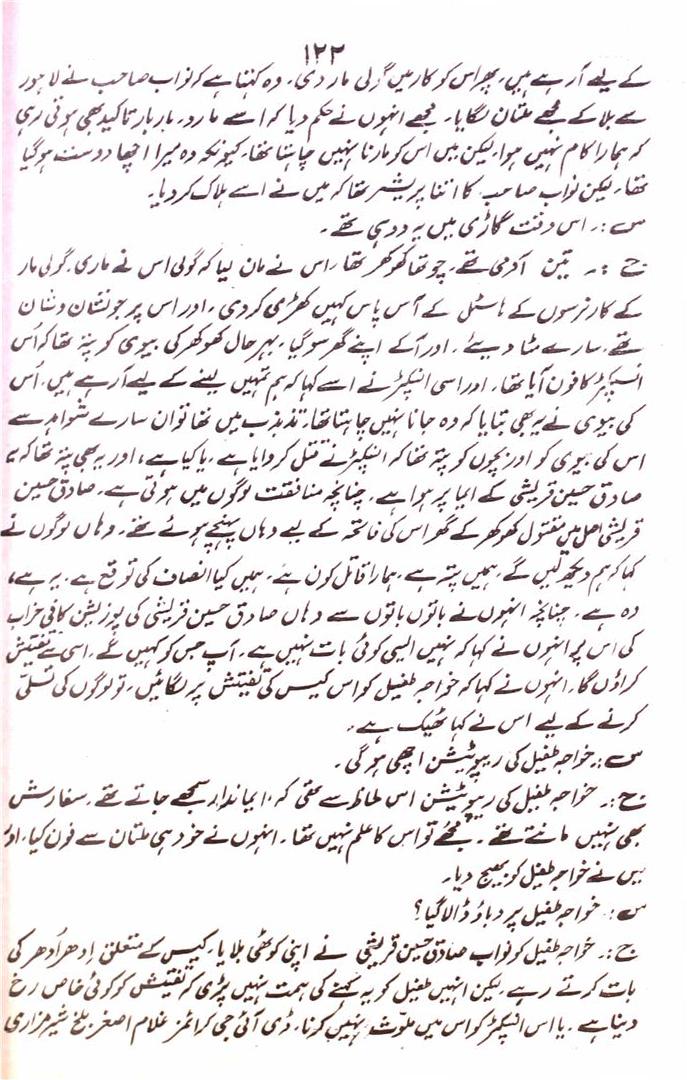 ۱۲۲
کے لیے آرہے ہیں، پھر اس کو کار میں گولی مار دی۔ وہ کہتا ہے کہ نواب صاحب نے لاہور
سے بلا کے مجھے ملتان لگایا۔ مجھے انہوں نے حکم دیا کہ اسے مارو۔ بار بار تاکید بھی ہوتی رہی
کہ ہمارا کام نہیں ہوا، لیکن میں اس کو مارنا نہیں چاہتا تھا، کیونکہ وہ میرا اچھا دوست ہوگیا
تھا، لیکن نواب صاحب کا اتنا پریشر تھا کہ میں نے اسے ہلاک کر دیا۔
س:۔ اس وقت گاڑی میں یہ دو ہی تھے۔
ج:۔ تین آدمی تھے، چوتھا کھوکھر تھا، اس نے مان لیا کہ گولی اس نے ماری۔ گولی مار
کے کار نرسوں کے ہاسٹل کے آس پاس کہیں کھڑی کر دی۔ اور اس پر جو نشان وشان
تھے، سارے مٹا دیئے۔ اور آکے اپنے گھر سو گیا۔ بہرحال کھوکھر کی بیوی کو پتہ تھا کہ اُس
انسپکٹر کا فون آیا تھا۔ اور اسی انسپکٹر نے اسے کہا کہ ہم تمہیں لینے کے لیے آرہے ہیں۔ اُس
کی بیوی نے یہ بھی بتایا کہ وہ جانا نہیں چاہتا تھا، تذبذب میں تھا تو ان سارے شواہد سے
اس کی بیوی کو اور بچوں کو پتہ تھا کہ انسپکٹر نے قتل کروایا ہے۔ یا کیا ہے، اور یہ بھی پتہ تھا کہ یہ
صادق حسین قریشی کے ایما پر ہوا ہے۔ چنانچہ منافقت لوگوں میں ہوتی ہے۔ صادق حسین
قریشی اصل میں مقتول کھوکھر کے گھر اس کی فاتحہ کے لیے وہاں پہنچے ہوئے تھے۔ وہاں لوگوں نے
کہا کہ ہم دیکھ لیں گے۔ ہمیں پتہ ہے۔ ہمارا قاتل کون ہے۔ ہمیں کیا انصاف کی توقع ہے۔ یہ ہے،
وہ ہے۔ چنانچہ انہوں نے باتوں باتوں سے وہاں صادق حسین قریشی کی پوزیشن کافی خراب
کی اس پر انہوں نے کہا کہ نہیں ایسی کوئی بات نہیں ہے۔ آپ جس کو کہیں گے۔ اسی سے تفتیش
کراؤں گا۔ انہوں نے کہا کہ خواجہ طفیل کو اس کیس کی تفتیش پر لگائیں، تو لوگوں کی تسلی
کرنے کے لیے اس نے کہا ٹھیک ہے۔
س:۔ خواجہ طفیل کی ریپوٹیشن اچھی ہوگی۔
ج:۔ خواجہ طفیل کی ریپوٹیشن اس لحاظ سے تھی کہ ایماندار سمجھے جاتے تھے۔ سفارش
بھی نہیں مانتے تھے۔ مجھے تو اس کا علم نہیں تھا۔ انہوں نے خود ہی ملتان سے فون کیا، اور
میں نے خواجہ طفیل کو بھیج دیا۔
س:۔ خواجہ طفیل پر دباؤ ڈالا گیا؟
ج:۔ خواجہ طفیل کو نواب صادق حسین قریشی نے اپنی کوٹھی بلایا۔ کیس کے متعلق اِدھر اُدھر کی
بات کرتے رہے۔ لیکن انہیں طفیل کو یہ کہنے کی ہمت نہیں پڑی کہ تفتیش کو کوئی خاص رخ
دینا ہے۔ یا اس انسپکٹر کو اس میں ملوث نہیں کرنا۔ ڈی آئی جی کرائمز غلام اصغر بلخ شیر مزاری